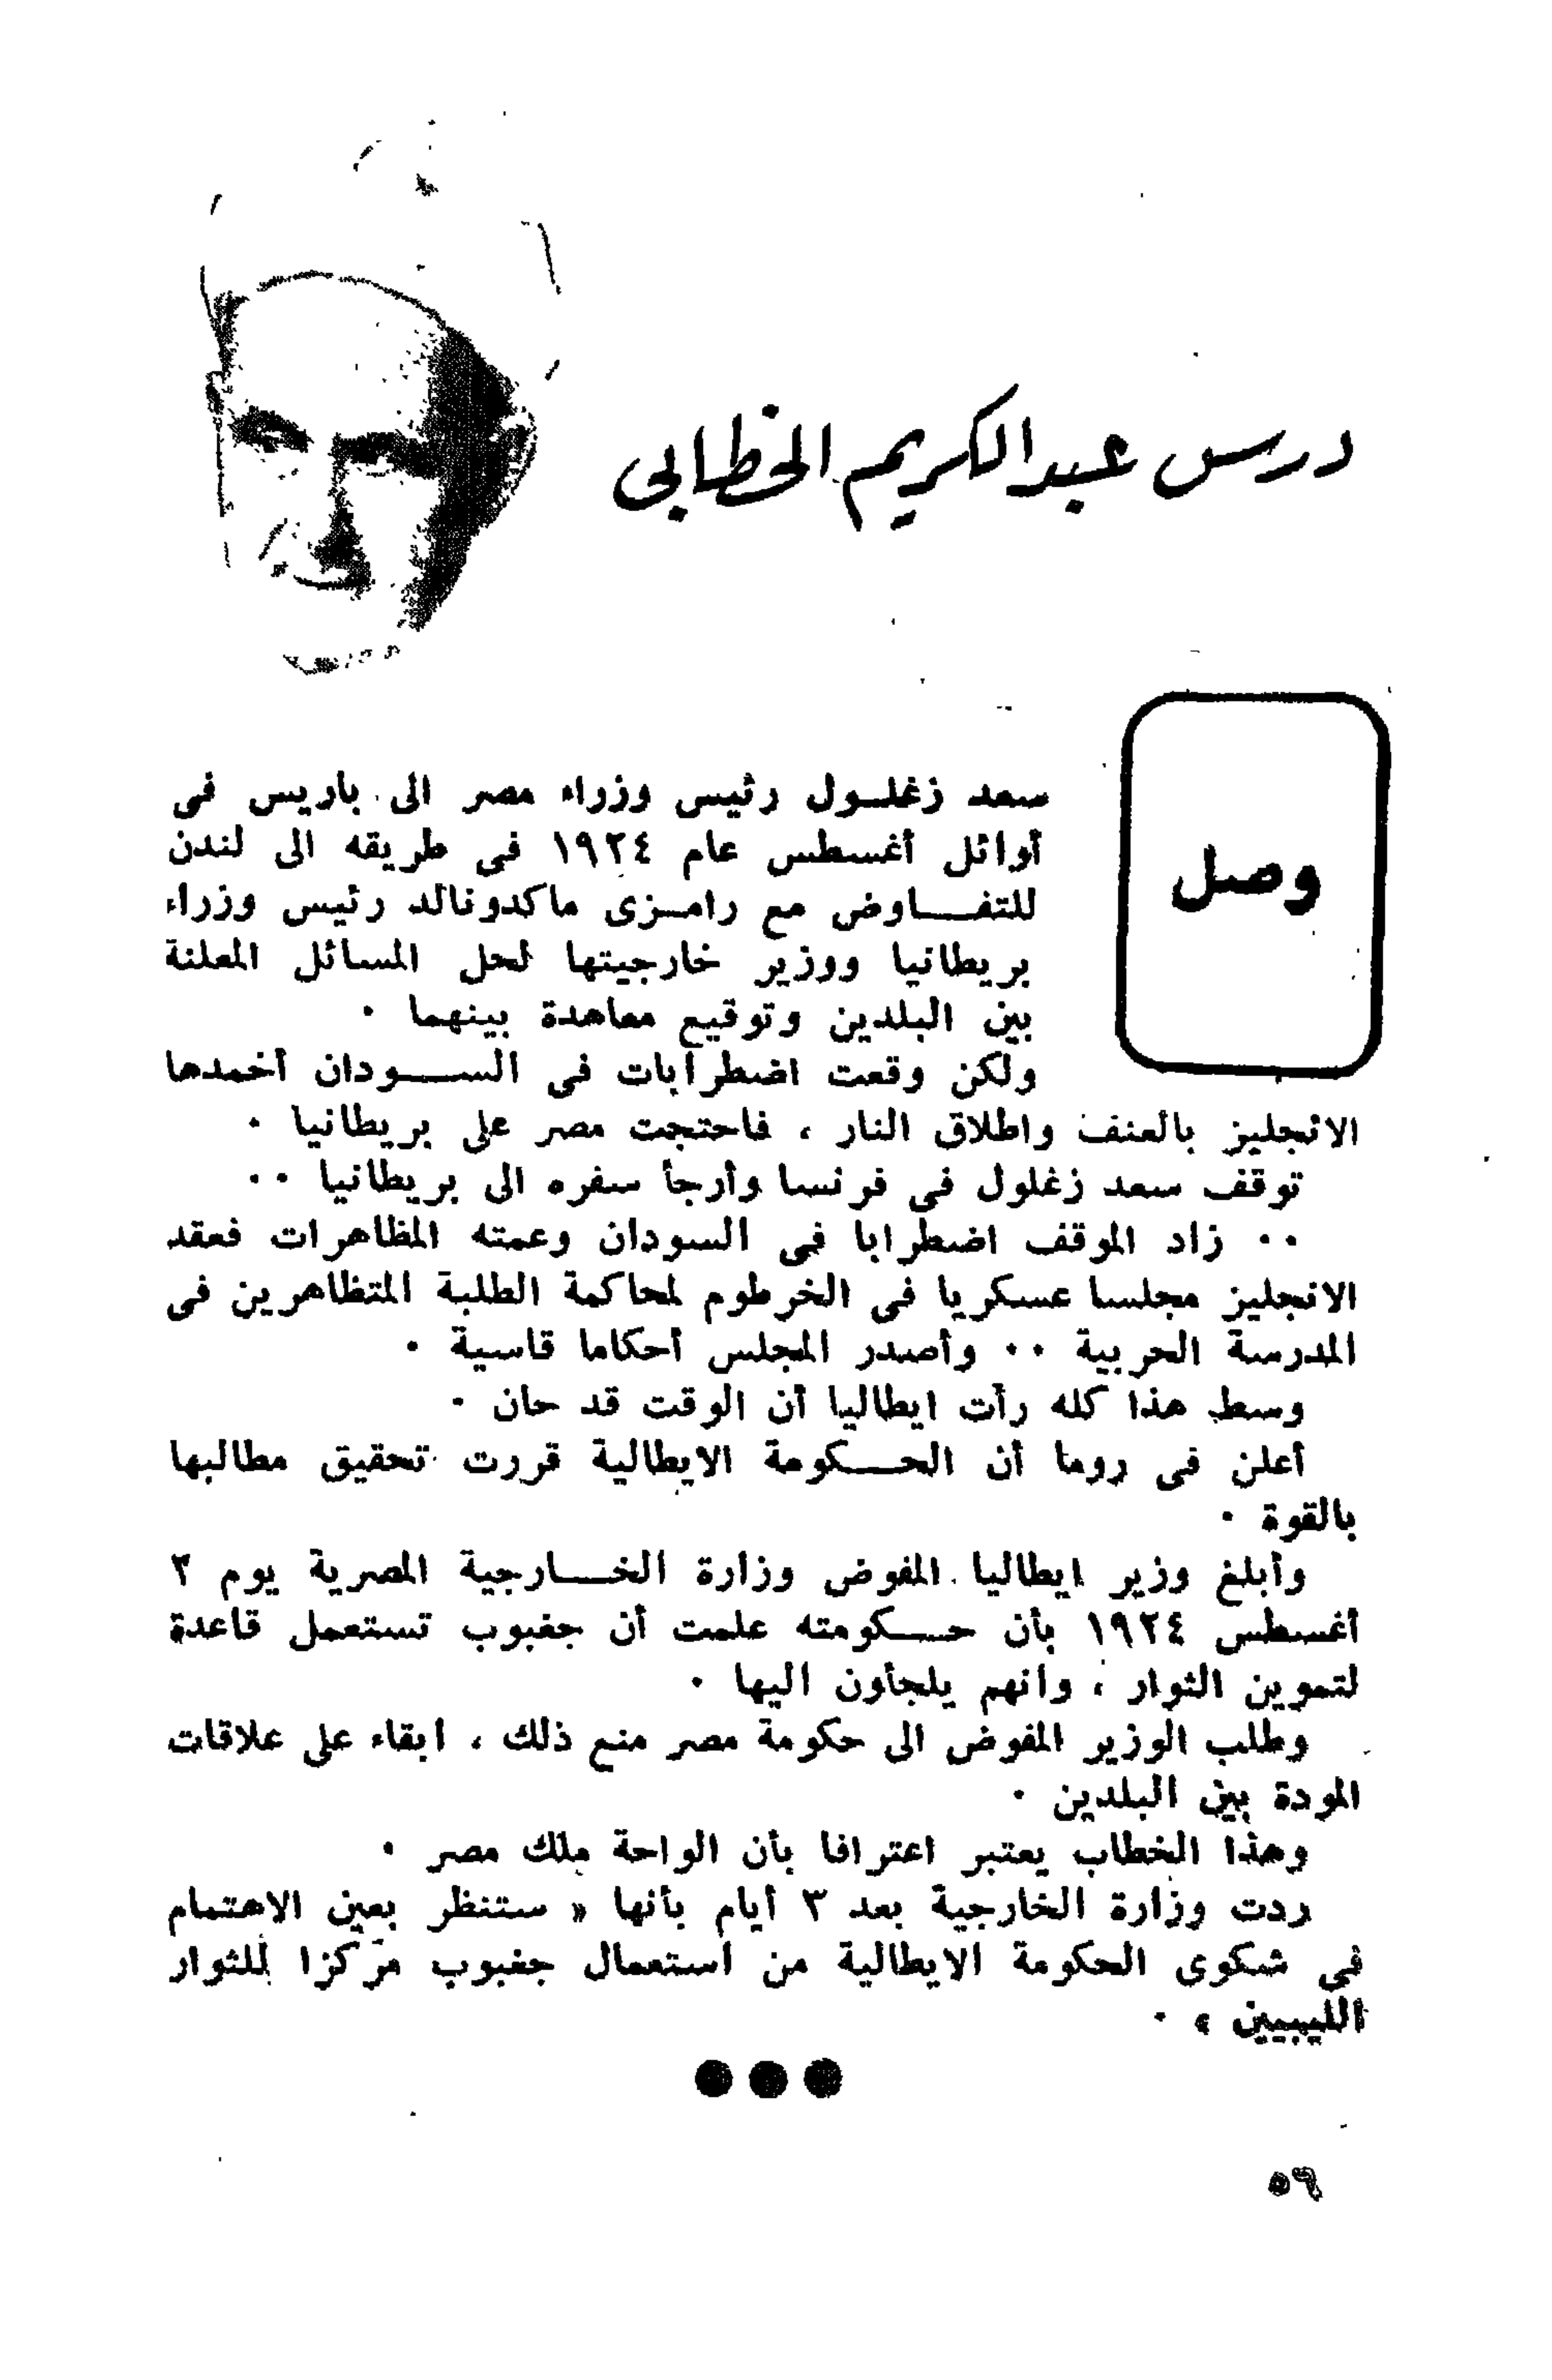 درس عبدالكريم الخطابى
وصل
سعد زغلـول رئيس وزراء مصر الى باريس فى
أوائل أغسطس عام ١٩٢٤ فى طريقه الى لندن
للتفـــاوض مع رامـزى ماكدونالد رئيس وزراء
بريطانيا ووزير خارجيتها لحل المسائل المعلنة
بين البلدين وتوقيع معاهدة بينهما ٠
ولكن وقعت اضطرابات فى الســـودان أخمدها
الانجليز بالعنف واطلاق النار ، فاحتجت مصر على بريطانيا ٠
توقف سعد زغلول فى فرنسا وأرجأ سفره الى بريطانيا ٠٠
٠٠ زاد الموقف اضطرابا فى السودان وعمته المظاهرات فعقد
الانجليز مجلسا عسكريا فى الخرطوم لمحاكمة الطلبة المتظاهرين فى
المدرسة الحربية ٠٠ وأصدر المجلس أحكاما قاسية ٠
وسط هذا كله رأت ايطاليا أن الوقت قد حان ٠
أعلن فى روما أن الحـــكومة الايطالية قررت تحقيق مطالبها
بالقوة ٠
وأبلغ وزير ايطاليا المفوض وزارة الخـــارجية المصرية يوم ٢
أغسطس ١٩٢٤ بأن حـــكومته علمت أن جغبوب تستعمل قاعدة
لتموين الثوار ، وانهم يلجأون اليها ٠
وطلب الوزير المفوض الى حكومة مصر منع ذلك ، ابقاء على علاقات
المودة بين البلدين ٠
وهذا الخطاب يعتبر اعترافا بأن الواحة ملك مصر ٠
ردت وزارة الخارجية بعد ٣ أيام بأنها « ستنظر بعين الاهتمام
فى شكوى الحكومة الايطالية من استعمال جغبوب مركزا للثوار
الليبيين » ٠
٥٦